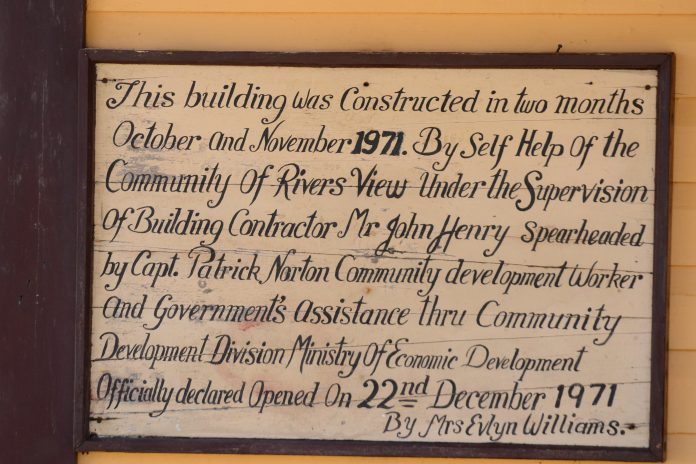 This building was Constructed in two months
October and November 1971. By Self Help Of the
Community Of Rivers View Under the Supervision
of Building Contractor Mr John Henry Spearheaded
by Capt. Patrick Norton Community development Worker
and Government's Assistance thru Community
Development Division Ministry Of Economic Development
Officially declared Opened On 22nd December 1971
By Mrs Evlyn Williams.